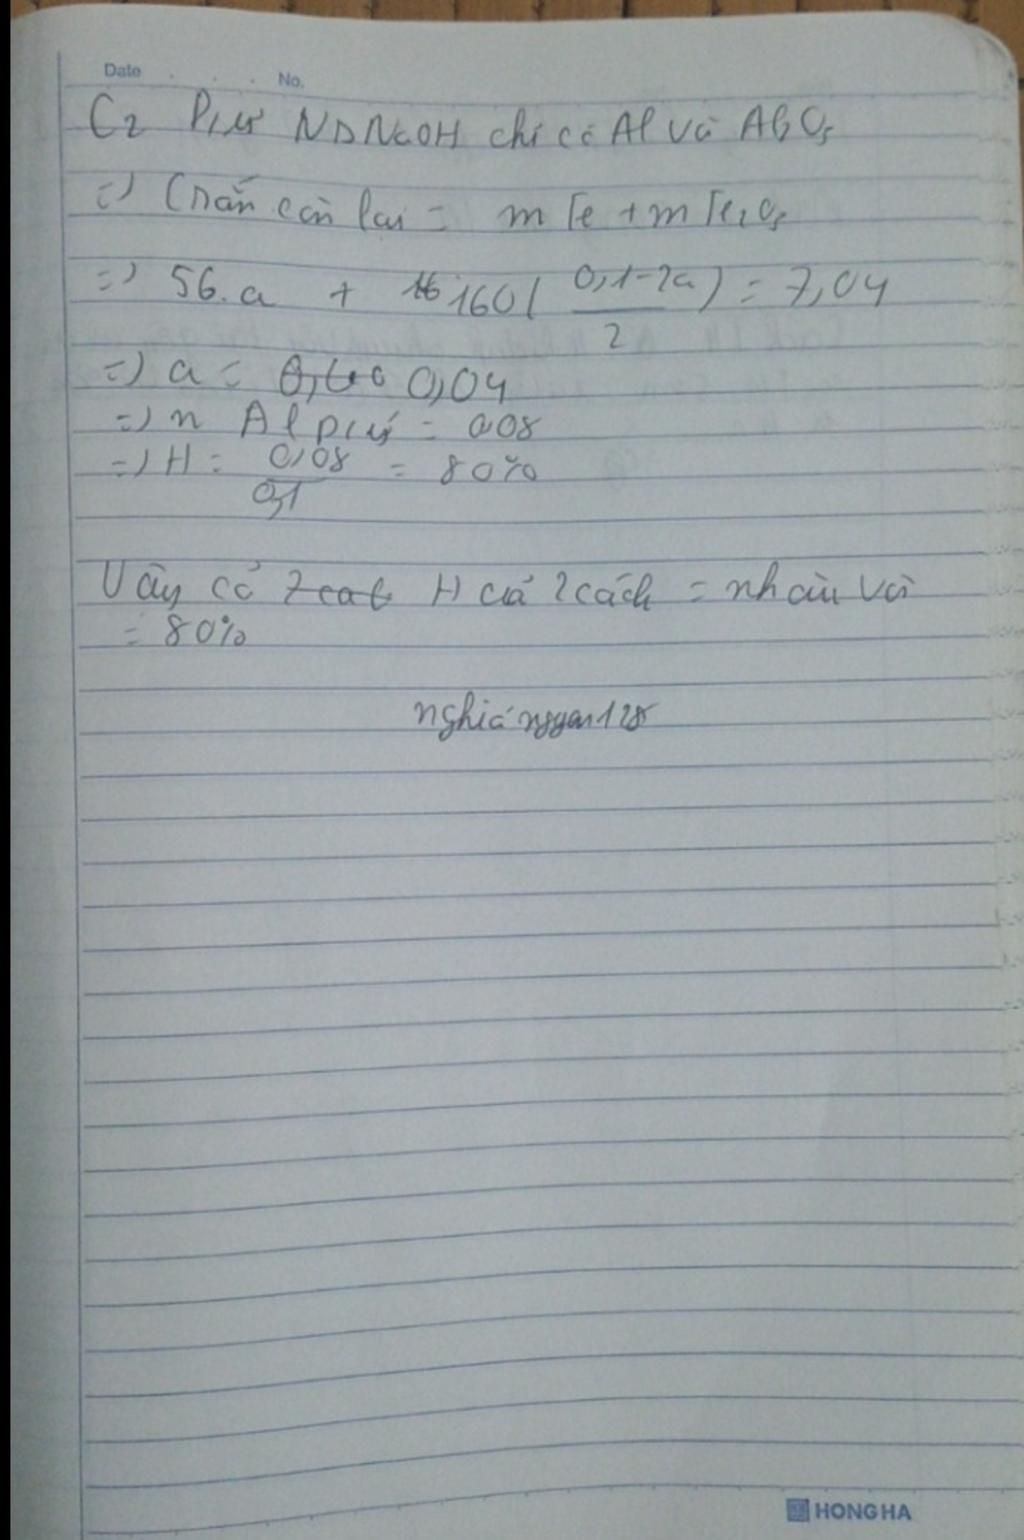 Date No.
C2 P/ư NDNaOH chỉ có Al và Al2O3
=> Crắn còn lại = mFe + mFe2O3
=> 56.a + 160( 0,1-2a / 2 ) = 7,04
=> a = 0,04
=> n Al p/ứ = 0,08
=> H = 0,08 / 0,1 = 80%
Vậy có H cả 2 cách = nhau và
= 80%
HONG HA